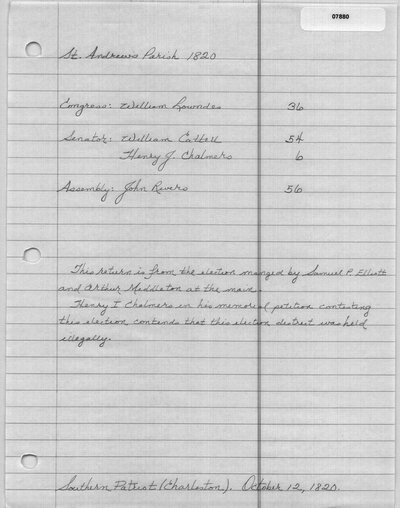 07880
St. Andrews Parish 1820
Congress: William Lowndes 36
Senator: William Cattell 54
Henry J. Chalmers 6
Assembly: John Rivers 56
This return is from the election manged by Samuel P. Elliott
and Arthur Meddleton at the main.
Henry I Chalmers in his memorial petition contesting
this election, contends that this election destrect was held
illegally.
Southern Patriot (Charleston). October 12, 1820.